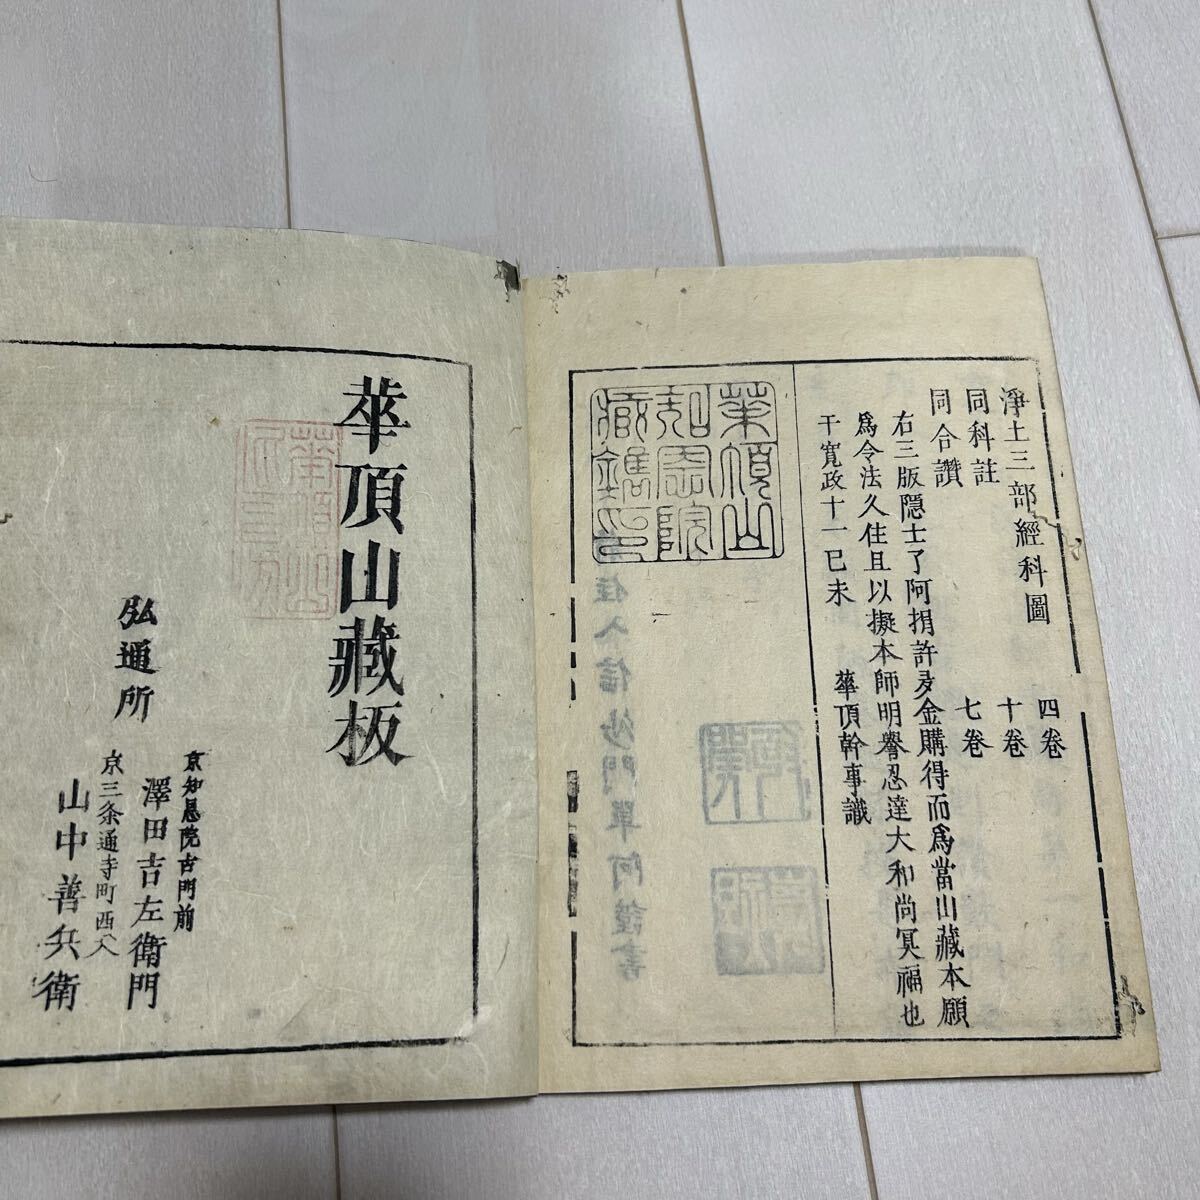 淨土三部經科圖 四卷
同科註 十卷
同合讚 七卷
右三版隠士了阿捐許多金購得而爲當山藏本願
爲令法久住且以擬本師明譽忍達大和尚冥福也
于寛政十一己未 華頂幹事識
華頂山
知恩院
藏鐫印
華頂山藏板
弘通所
京知恩院古門前
澤田吉左衛門
京三条通寺町西入
山中善兵衛